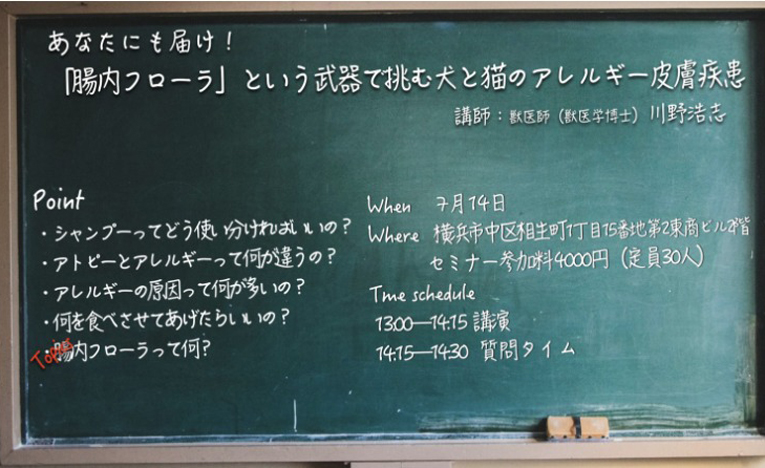 あなたにも届け！
「腸内フローラ」という武器で挑む犬と猫のアレルギー皮膚疾患
講師：獣医師（獣医学博士）川野浩志
Point
・シャンプーってどう使い分ければいいの？
・アトピーとアレルギーって何が違うの？
・アレルギーの原因って何が多いの？
・何を食べさせてあげたらいいの？
Topics
・腸内フローラって何?
When 7月14日
Where 横浜市中区相生町1丁目15番地第2東商ビル2階
セミナー参加料4000円（定員30人）
Tme schedule
13:00—14:15 講演
14:15—14:30 質問タイム